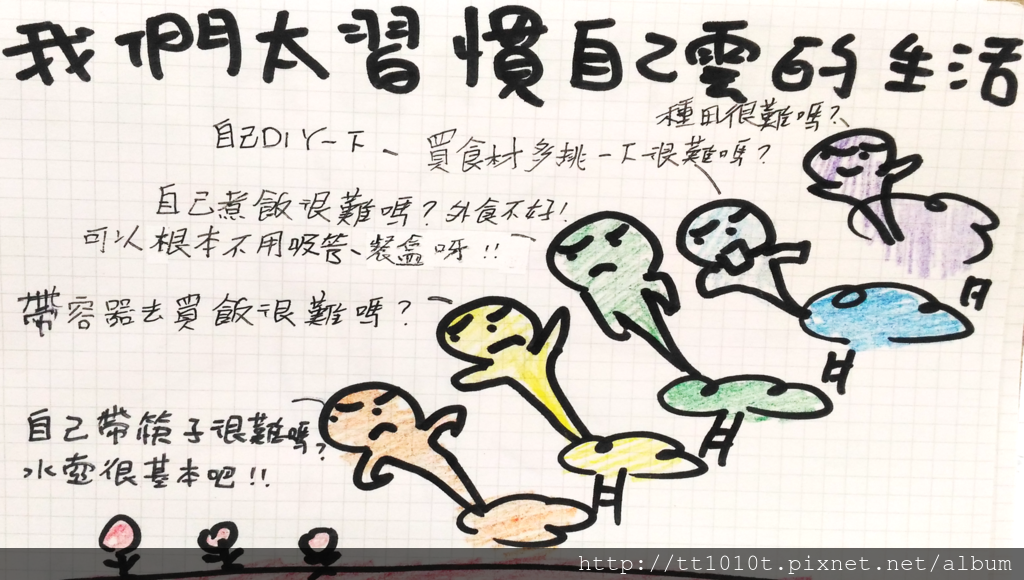 我們太習慣自己雲的生活
種田很難嗎?
自己DIY一下、買食材多挑一下很難嗎?
自己煮飯很難嗎?外食不好!
可以根本不用吸管、裝盒呀!!
帶容器去買飯很難嗎?
自己帶筷子很難嗎?
水壺很基本吧!!
http://tt1010t.pixnet.net/album